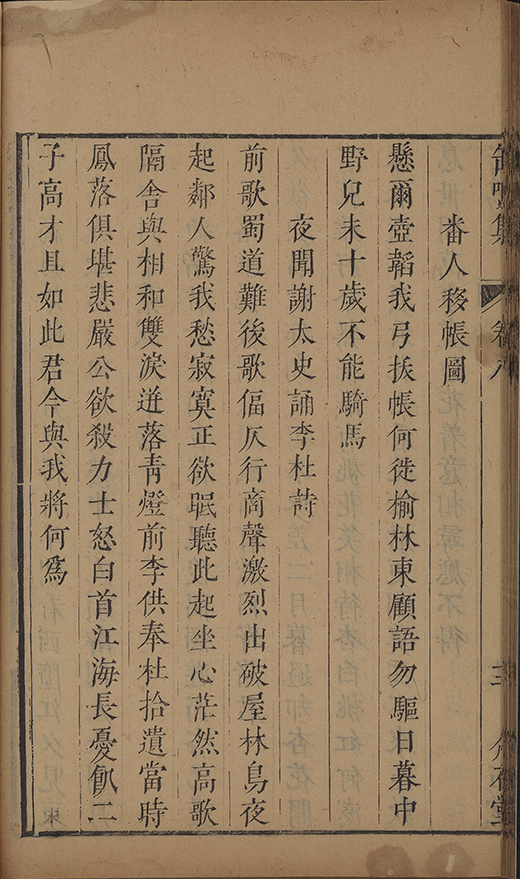 缶鳴集
卷八
三
番人移帳圖
懸爾壺韜我弓挾帳何徙榆林東顧語勿驅日暮中
野兒未十歲不能騎馬
夜聞謝太史誦李杜詩
前歌蜀道難後歌偪仄行商聲激烈出破屋林鳥夜
起鄰人驚我愁寂寞正欲眠聽此起坐心茫然高歌
隔舍與相和雙淚迸落青燈前李供奉杜拾遺當時
鳳落俱堪悲嚴公欲殺力士怒白首江海長憂飢二
子高才且如此君今與我將何爲